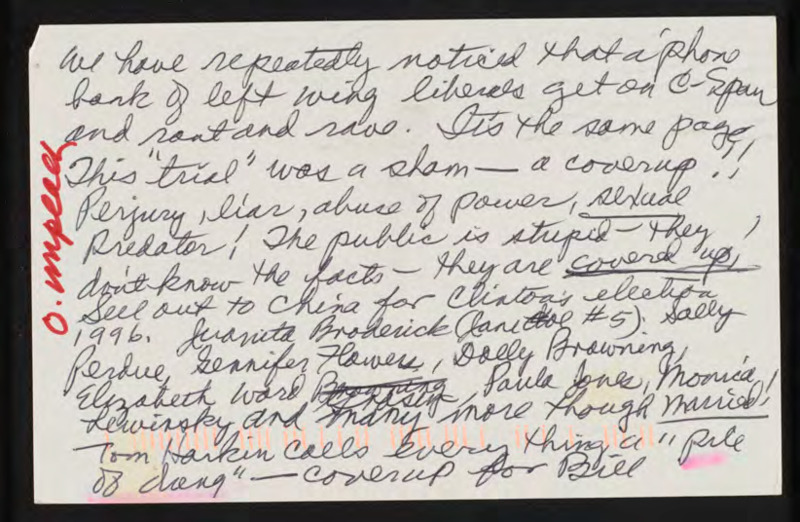 We have repeatedly noticed that a 'phone
bank of left wing liberals get on C-Span
and rant and rave. It's the same page
This "trial" was a sham — a coverup!!
Perjury, liar, abuse of power, sexual
Predator! The public is stupid — They
don't know the facts — they are covered up,
Sell out to China for Clinton's election
1996. Juanita Broderick (Jane Doe #5). Sally
Perdue, Gennifer Flowers, Dolly Browning,
Elizabeth Ward, Paula Jones, Monica
Lewinsky and many more though married!
Tom Harkin calls every thing a "pile
of dung" — coverup for Bill
O. impeach